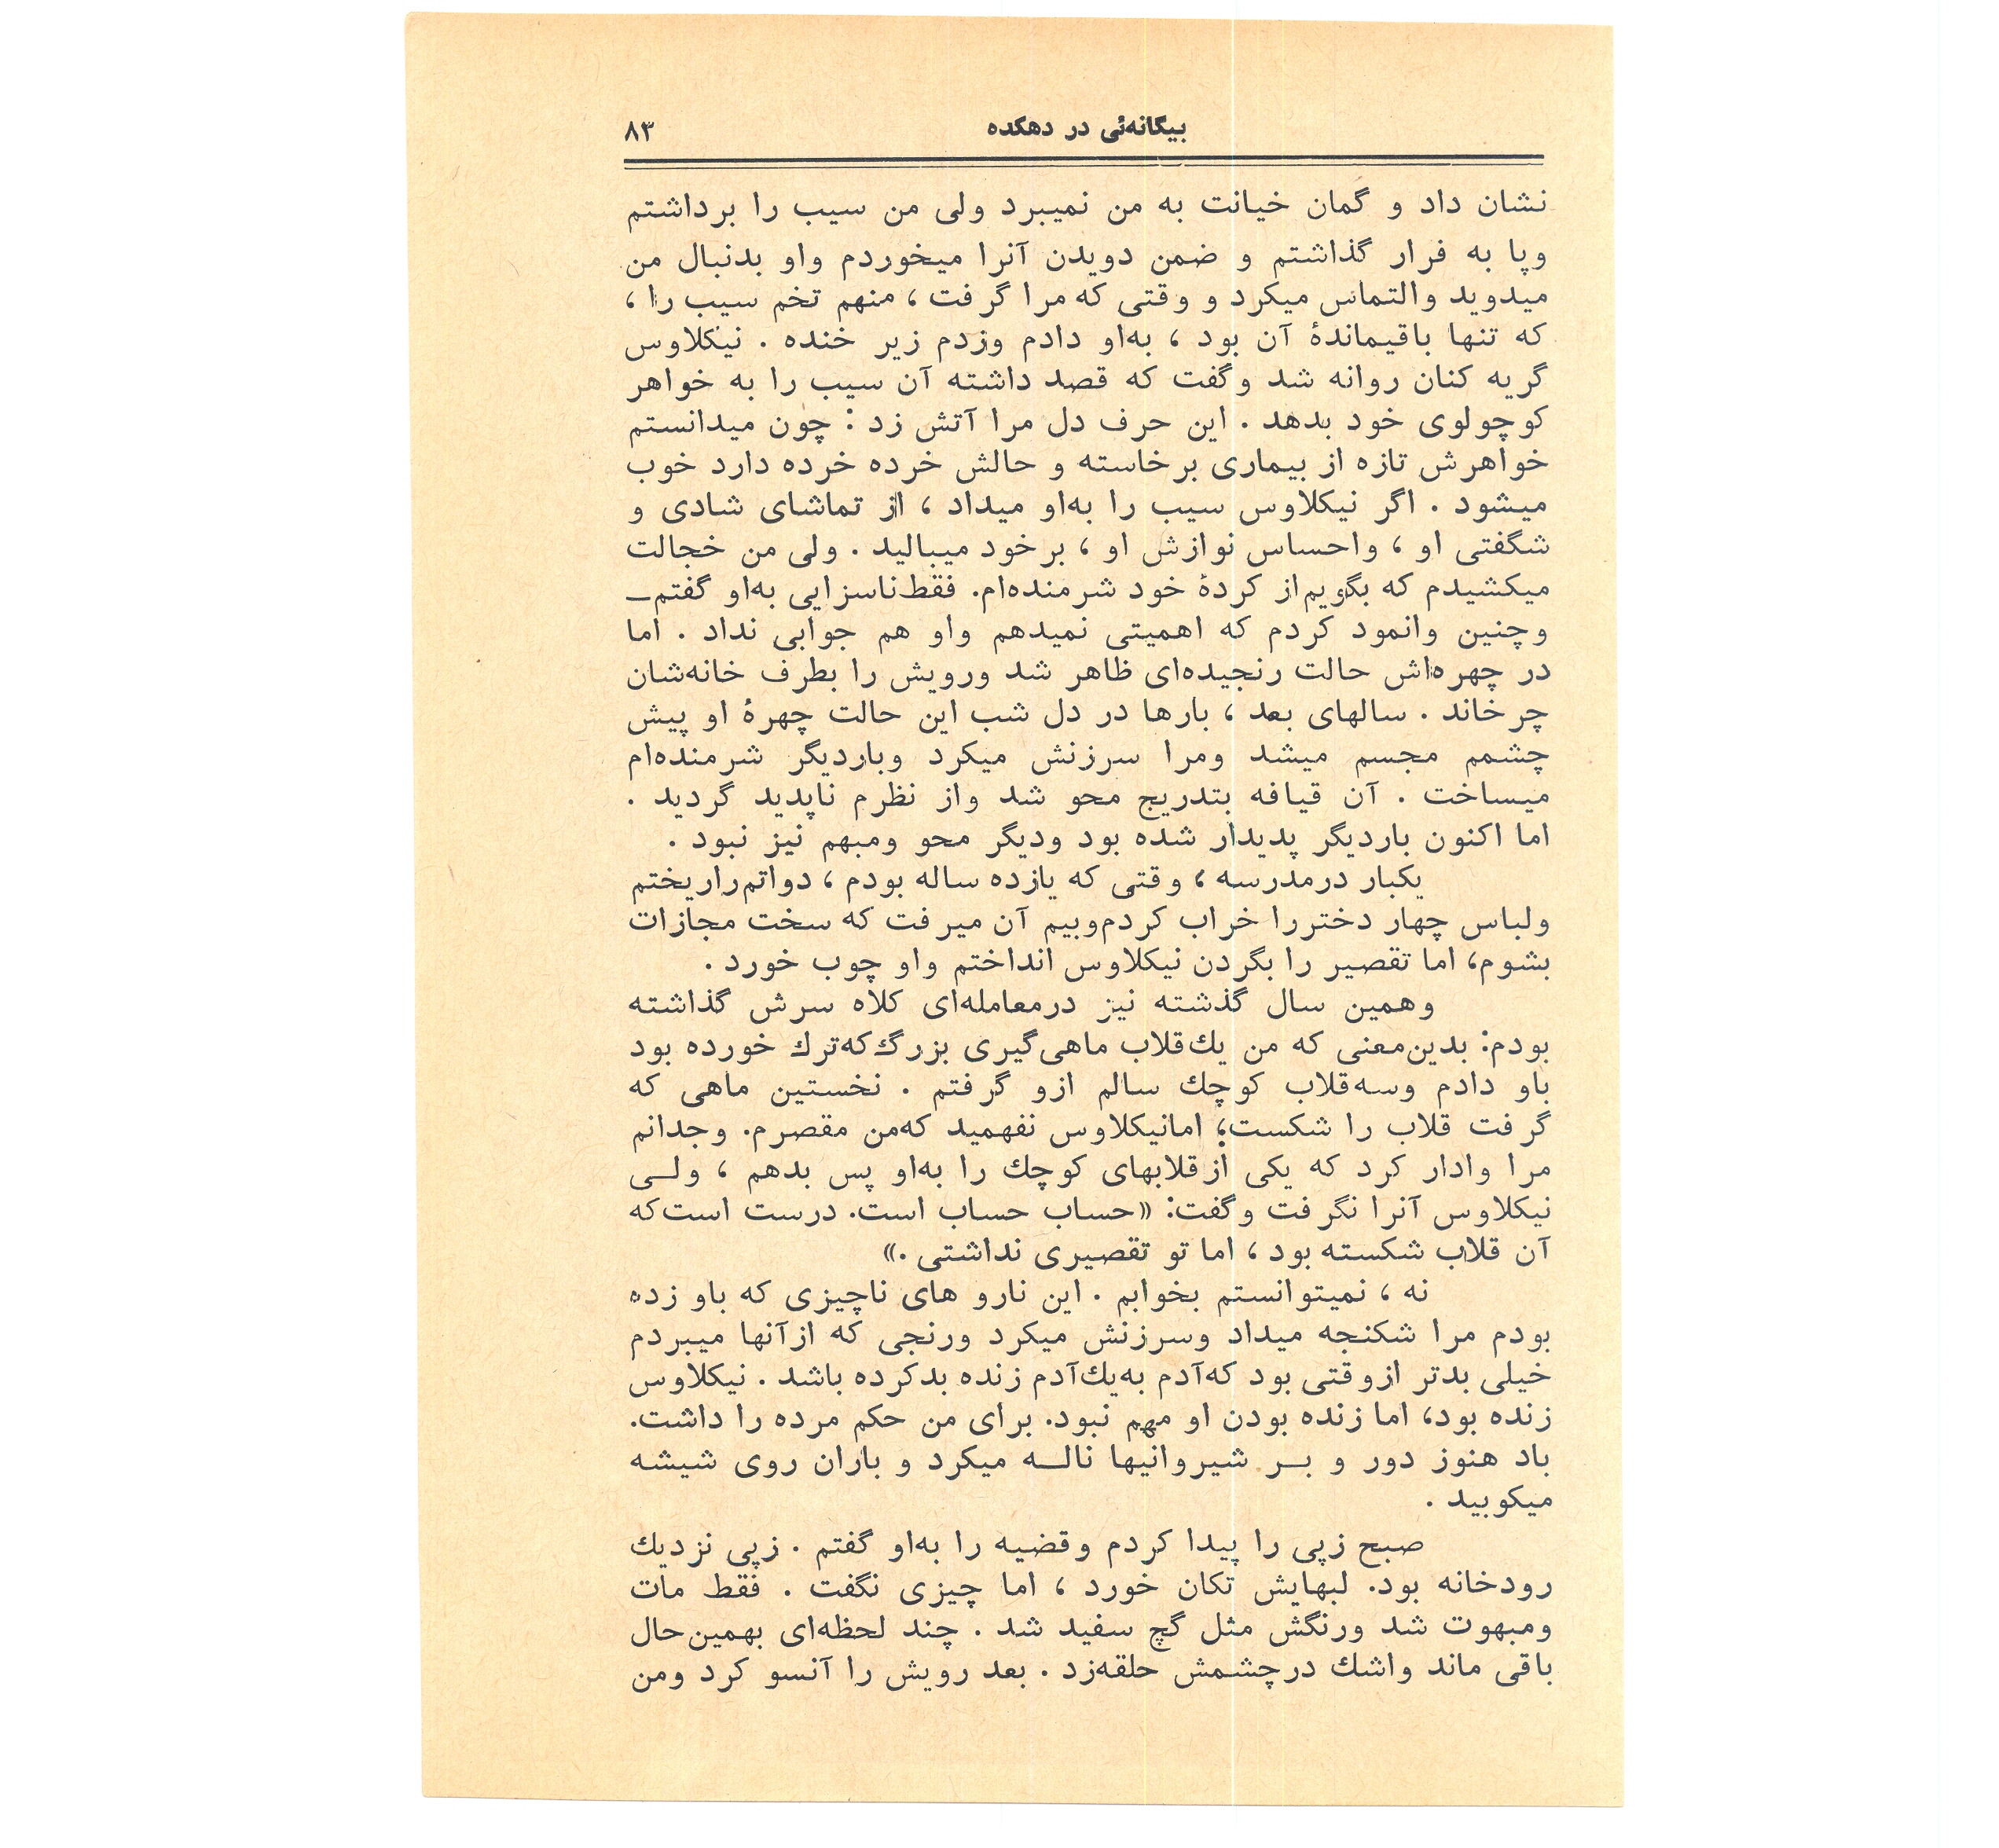 بیگانه‌ئی در دهکده
۸۳
نشان داد و گمان خیانت به من نمیبرد ولی من سیب را برداشتم
وپا به فرار گذاشتم و ضمن دویدن آنرا میخوردم واو بدنبال من
میدوید والتماس میکرد و وقتی که مرا گرفت ، منهم تخم سیب را ،
که تنها باقیماندهٔ آن بود ، به‌او دادم وزدم زیر خنده . نیکلاوس
گریه کنان روانه شد وگفت که قصد داشته آن سیب را به خواهر
کوچولوی خود بدهد . این حرف دل مرا آتش زد : چون میدانستم
خواهرش تازه از بیماری برخاسته و حالش خرده خرده دارد خوب
میشود . اگر نیکلاوس سیب را به‌او میداد ، از تماشای شادی و
شگفتی او ، واحساس نوازش او ، برخود میبالید . ولی من خجالت
میکشیدم که بگویم‌از کردهٔ خود شرمنده‌ام. فقط‌ناسزایی به‌او گفتم—
وچنین وانمود کردم که اهمیتی نمیدهم واو هم جوابی نداد . اما
در چهره‌اش حالت رنجیده‌ای ظاهر شد ورویش را بطرف خانه‌شان
چرخاند . سالهای بعد ، بارها در دل شب این حالت چهرهٔ او پیش
چشمم مجسم میشد ومرا سرزنش میکرد وباردیگر شرمنده‌ام
میساخت . آن قیافه بتدریج محو شد واز نظرم ناپدید گردید .
اما اکنون باردیگر پدیدار شده بود ودیگر محو ومبهم نیز نبود .
یکبار درمدرسه ، وقتی که یازده ساله بودم ، دواتم‌راریختم
ولباس چهار دختررا خراب کردم‌وبیم آن میرفت که سخت مجازات
بشوم، اما تقصیر را بگردن نیکلاوس انداختم واو چوب خورد .
وهمین سال گذشته نیز درمعامله‌ای کلاه سرش گذاشته
بودم: بدین‌معنی که من یك‌قلاب ماهی‌گیری بزرگ‌که‌ترك خورده بود
باو دادم وسه‌قلاب کوچك سالم ازو گرفتم . نخستین ماهی که
گرفت قلاب را شکست؛ امانیکلاوس نفهمید که‌من مقصرم. وجدانم
مرا وادار کرد که یکی ازقلابهای کوچك را به‌او پس بدهم ، ولـی
نیکلاوس آنرا نگرفت وگفت: «حساب حساب است. درست است‌که
آن قلاب شکسته بود ، اما تو تقصیری نداشتی .»
نه ، نمیتوانستم بخوابم . این نارو های ناچیزی که باو زده
بودم مرا شکنجه میداد وسرزنش میکرد ورنجی که ازآنها میبردم
خیلی بدتر ازوقتی بود که‌آدم به‌یك‌آدم زنده بدکرده باشد . نیکلاوس
زنده بود، اما زنده بودن او مهم نبود. برای من حکم مرده را داشت.
باد هنوز دور و بـر شیروانیها نالـه میکرد و باران روی شیشه
میکوبید .
صبح زپی را پیدا کردم وقضیه را به‌او گفتم . زپی نزدیك
رودخانه بود. لبهایش تکان خورد ، اما چیزی نگفت . فقط مات
ومبهوت شد ورنگش مثل گچ سفید شد . چند لحظه‌ای بهمین‌حال
باقی ماند واشك درچشمش حلقه‌زد . بعد رویش را آنسو کرد ومن